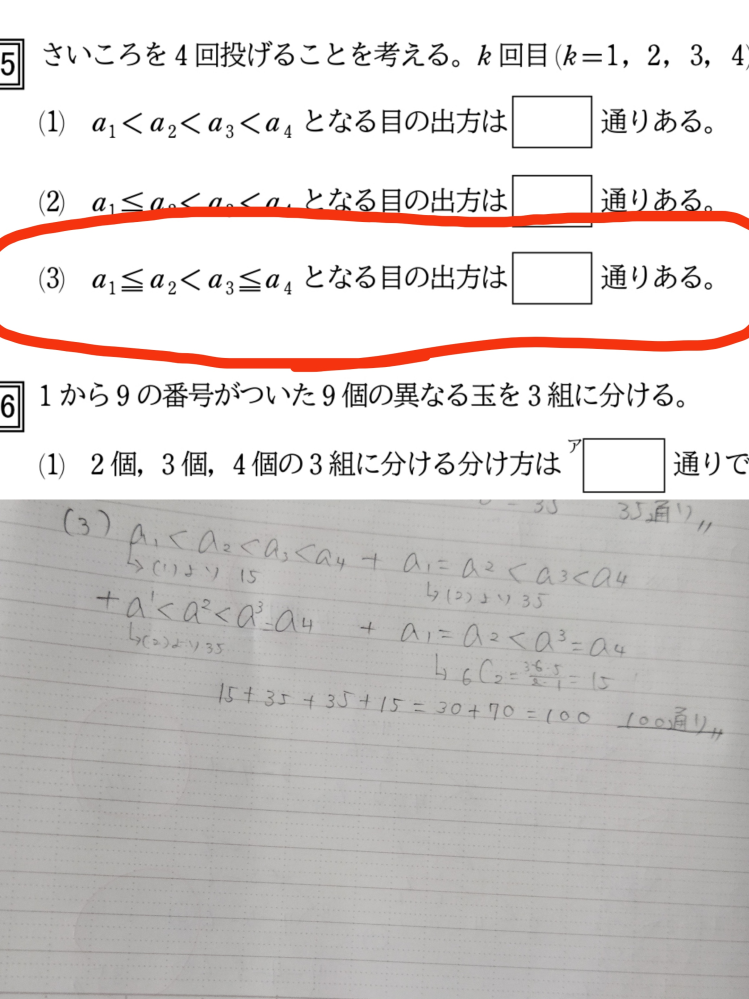 5 さいころを4回投げることを考える。k回目(k=1, 2, 3, 4)
(1) a₁<a₂<a₃<a₄ となる目の出方は 通りある。
(2) a₁≦a₂<a₃<a₄ となる目の出方は 通りある。
(3) a₁≦a₂<a₃≦a₄ となる目の出方は 通りある。
6 1から9の番号がついた9個の異なる玉を3組に分ける。
(1) 2個, 3個, 4個の3組に分ける分け方は ア 通りで
= 35 35通り〃
(3) a₁<a₂<a₃<a₄ + a₁=a₂<a₃<a₄
↳(1)より 15 ↳(2)より35
+ a¹<a²<a³=a₄ + a₁=a₂<a³=a₄
↳(2)より35 ↳ ₆C₂= 6·5/2·1 = 15
15+35+35+15=30+70=100 100通り〃